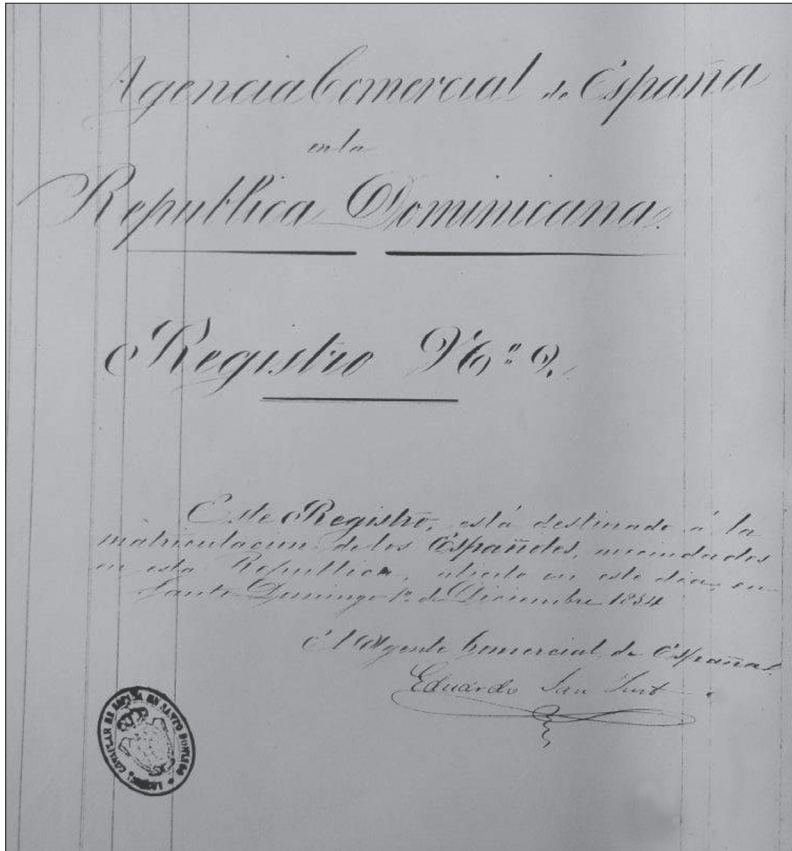 Agencia Comercial de España
en la
Republica Dominicana.
Registro N.º 9.
Este Registro, está destinado á la
matriculacion de los Españoles, avecindados
en esta Republica, abierto en este dia, en
Santo Domingo 1º de Diciembre 1854
El Agente Comercial de España
Eduardo San Just